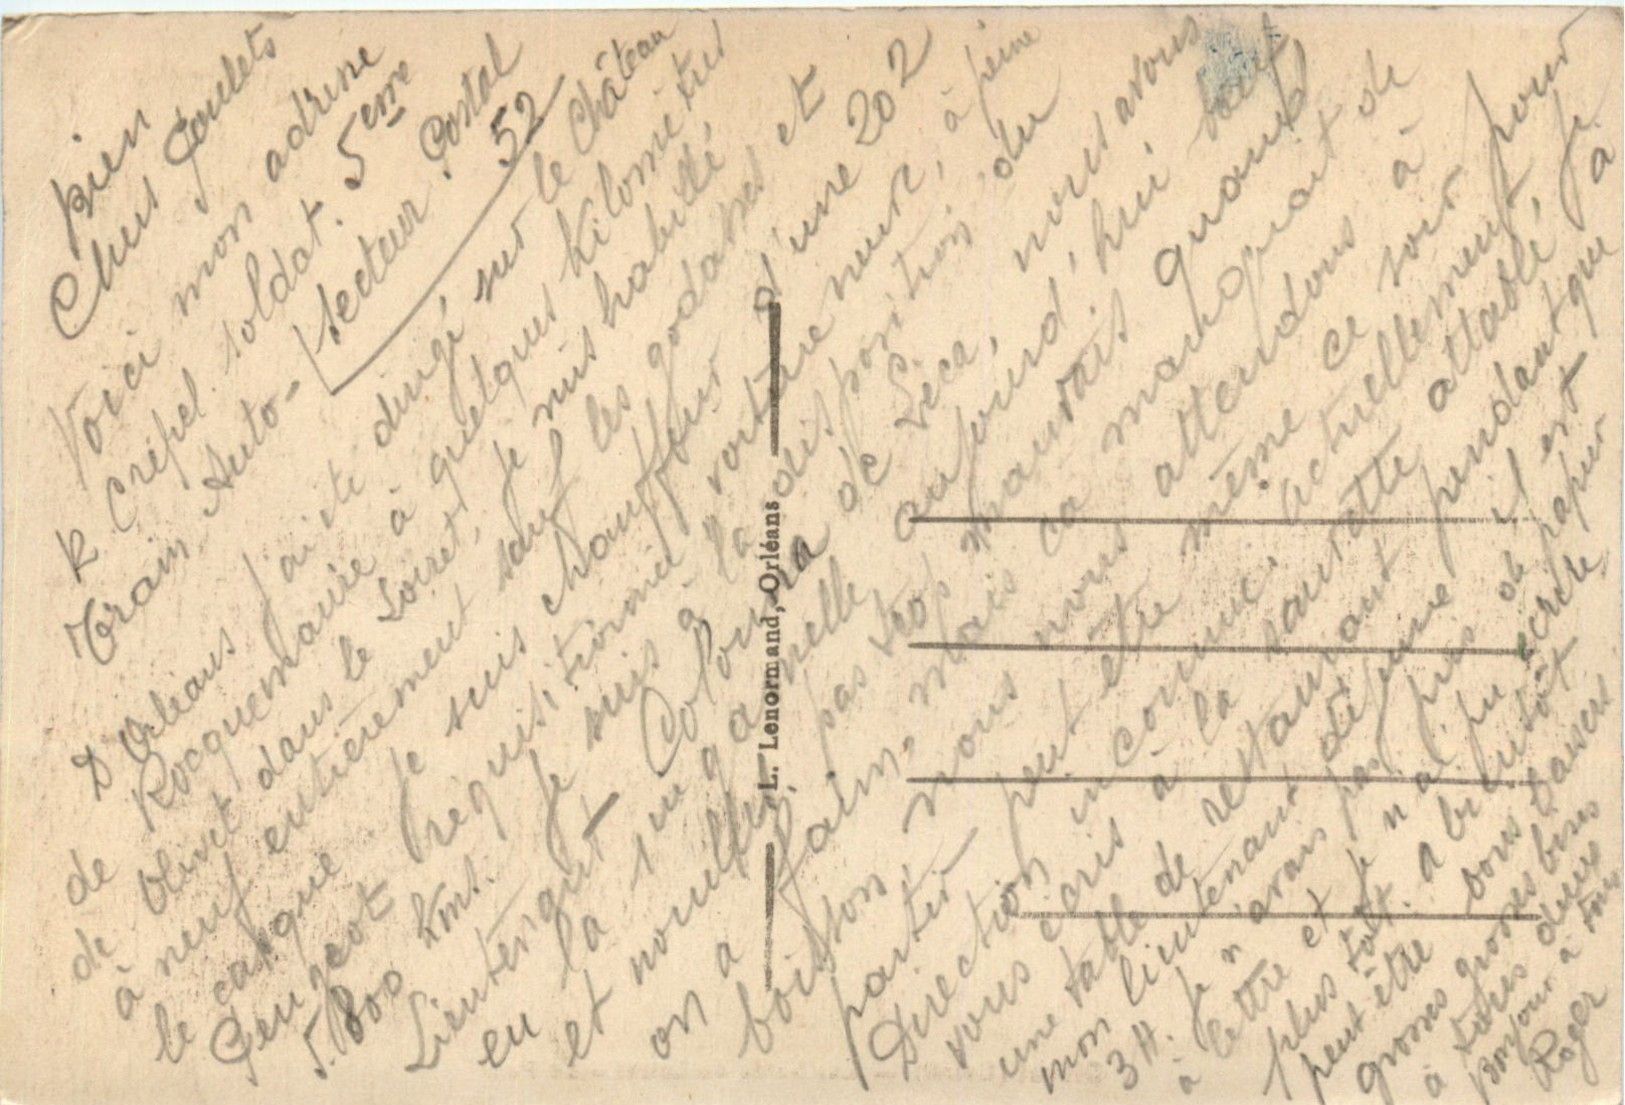 Bien
Chers Goulets
Voici mon adresse
R Crépel. soldat. 5eme
Train Auto-
Secteur Postal
52
D'Orléans j'ai été dirigé sur le Château
de Rocquemaurie à quelques Kilomètres
de Olivet dans le Loiret, je suis habillé
à neuf entièrement sauf les godasses et
le casque Je suis chauffeur d'une 202
Peugeot réquisitionnée voiture neuve, à peine
5.800 Kms. Je suis à la disposition du
Lieutenant Colon de Seca, nous avons
eu la gamelle aujourd'hui bœuf
et nouilles pas trop mauvais quand
on a faim, mais ça manquait de
boisson nous nous attendons à
partir peut être même ce soir pour
Direction inconnue. Actuellement je
vous écris à la sauvette attablé à
une table de restaurant pendant que
mon lieutenant déjeune il est
3 H. Je n'avais pas pris de papier
à lettre et je n'ai pu écrire
plus tôt. A bientôt
peut être bons baisers
grosses grosses bises
à toutes deux
Bonjour à tous
Roger
L. Lenormand, Orléans